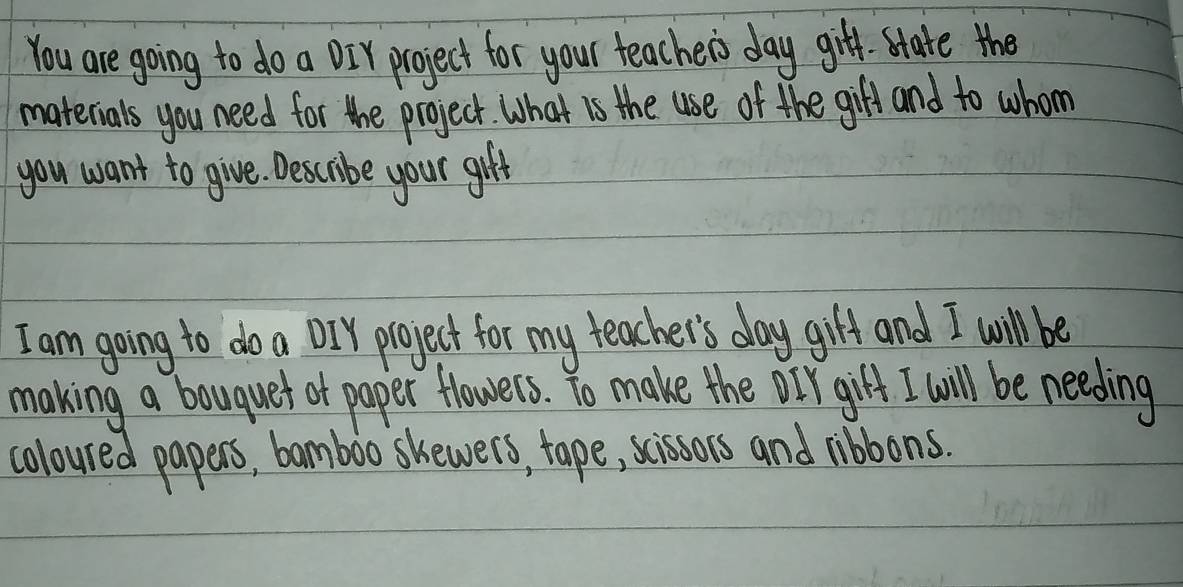 You are going to do a DIY project for your teacher's day gift. State the
materials you need for the project. What is the use of the gift and to whom
you want to give. Describe your gift
I am going to do a DIY project for my teacher's day gift and I will be
making a bouquet of paper flowers. To make the DIY gift I will be needing
coloured papers, bamboo skewers, tape, scissors and ribbons.